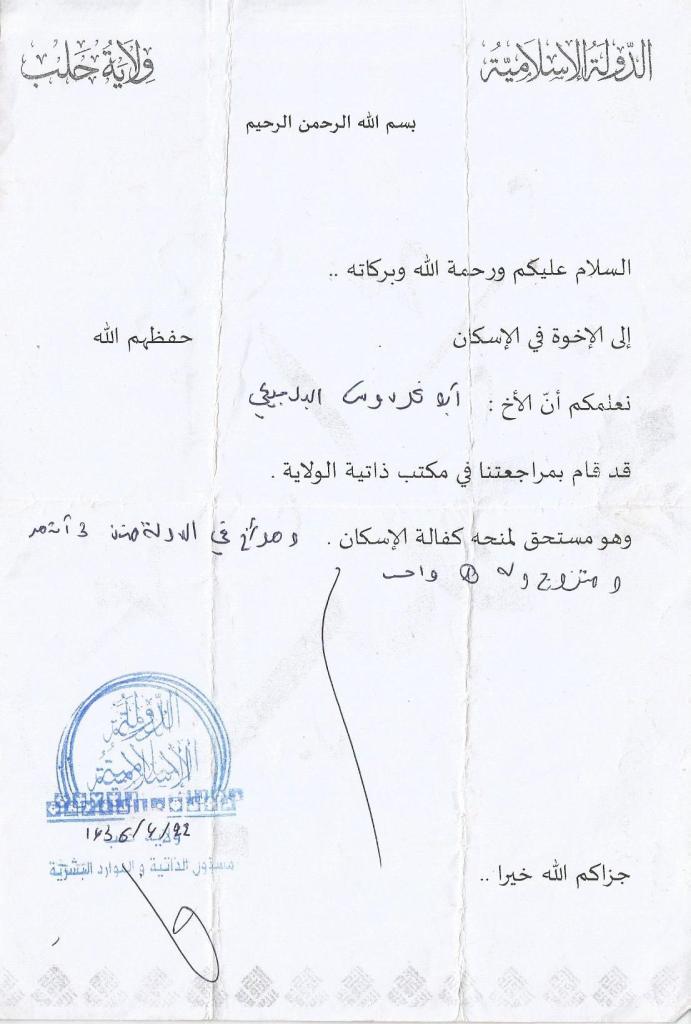 الدولة الإسلامية
ولاية حلب
بسم الله الرحمن الرحيم
السلام عليكم ورحمة الله وبركاته ..
إلى الإخوة في الإسكان حفظهم الله
نعلمكم أنّ الأخ : البلجيكي
قد قام بمراجعتنا في مكتب ذاتية الولاية .
وهو مستحق لمنحه كفالة الإسكان . في الدولة منذ 3 أشهر
و متزوج وله واحد
الدولة
الإسلامية
ولاية حلب
1436/6/22
مسؤول الذاتية و الموارد البشرية
جزاكم الله خيرا ..